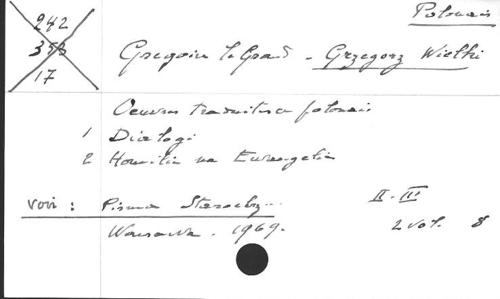 Polonais
242
353
17
Gregoire le Grand - Grzegorz Wielki
Oeuvres traduites en polonais
1 Dialogi
2 Homilie na Ewangelie
voir : Pisma Starochrz... II-III
Warszawa. 1969. 2 vol. 8